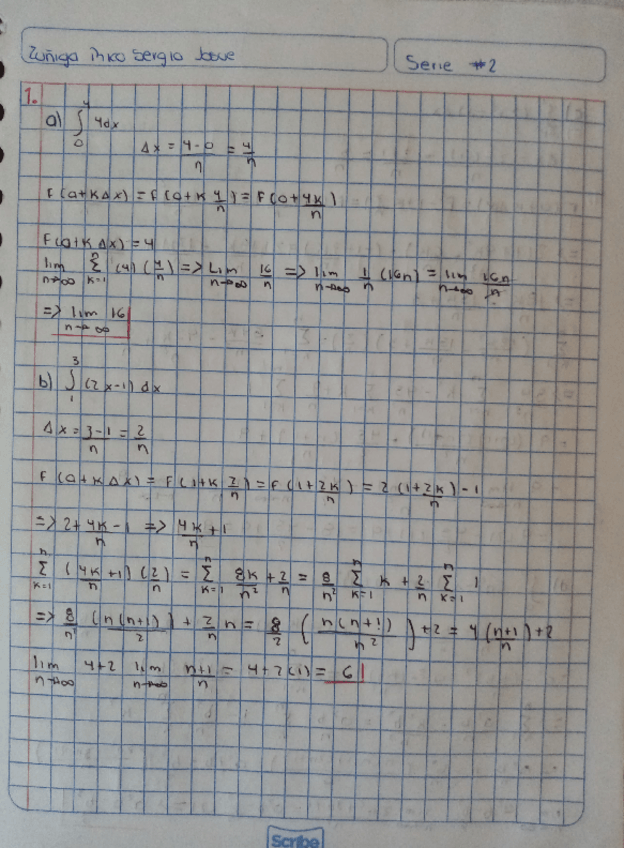 Zuñiga Rico Sergio Josue
Serie #2
1.
a) ∫₀⁴ 4dx
Δx = (4-0)/n = 4/n
F(a+KΔx) = F(0+K 4/n) = F(0+4K/n)
F(a+KΔx) = 4
lim n→∞ Σ k=1 n (4)(4/n) => Lim n→∞ 16/n => lim n→∞ 1/n (16n) = lim n→∞ 16n/n
=> lim n→∞ 16
b) ∫₁³ (2x-1) dx
Δx = (3-1)/n = 2/n
F(a+KΔx) = F(1+K 2/n) = F(1+2K/n) = 2(1+2K/n)-1
=> 2+4K/n-1 => 4K/n+1
Σ k=1 n (4K/n+1)(2/n) = Σ k=1 n 8K/n²+2/n = 8/n² Σ k=1 n K + 2/n Σ k=1 n 1
=> 8/n² (n(n+1)/2) + 2/n n = 8/2 (n(n+1)/n²)+2 = 4(n+1/n)+2
lim n→∞ 4+2 lim n→∞ n+1/n = 4+2(1) = 6
Scribe